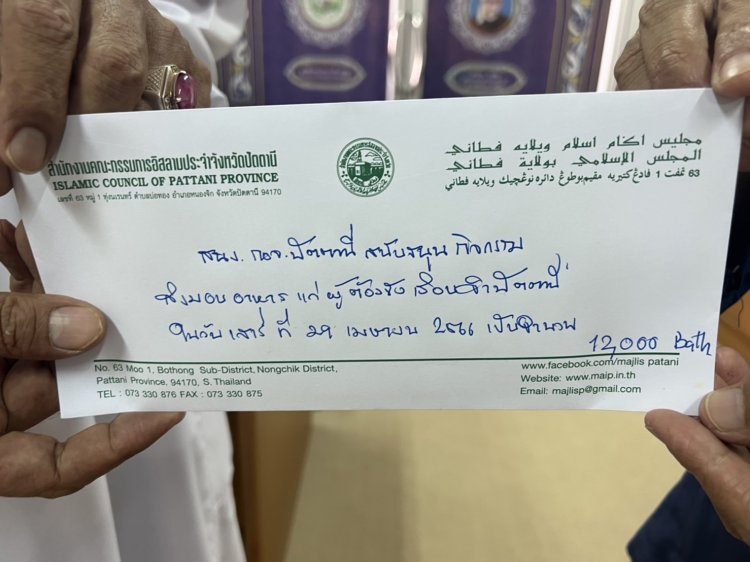 สำนักงานคณะกรรมการอิสลามประจำจังหวัดปัตตานี
ISLAMIC COUNCIL OF PATTANI PROVINCE
เลขที่ 63 หมู่ 1 ทุ่งนเรนทร์ ตำบลบ่อทอง อำเภอหนองจิก จังหวัดปัตตานี 94170
مجليس اݢام اسلام ويلايه فطاني
المجلس الإسلامي بولاية فطاني
63 تمفت 1 فادڠ كنيريه مقيم بوطوڠ دائره نوڠچيك ويلايه فطاني
สนง. กอจ. ปัตตานี สนับสนุน กิจกรรม
ส่งมอบ อาหาร แก่ ผู้ต้องขัง เรือนจำปัตตานี
ในวัน เสาร์ ที่ 29 เมษายน 2566 เป็นจำนวน
12,000 Bath
No. 63 Moo 1, Bothong Sub-District, Nongchik District,
Pattani Province, 94170, S. Thailand
TEL : 073 330 876 FAX : 073 330 875
www.facebook.com/majlis patani
Website: www.maip.in.th
Email: majlisp@gmail.com